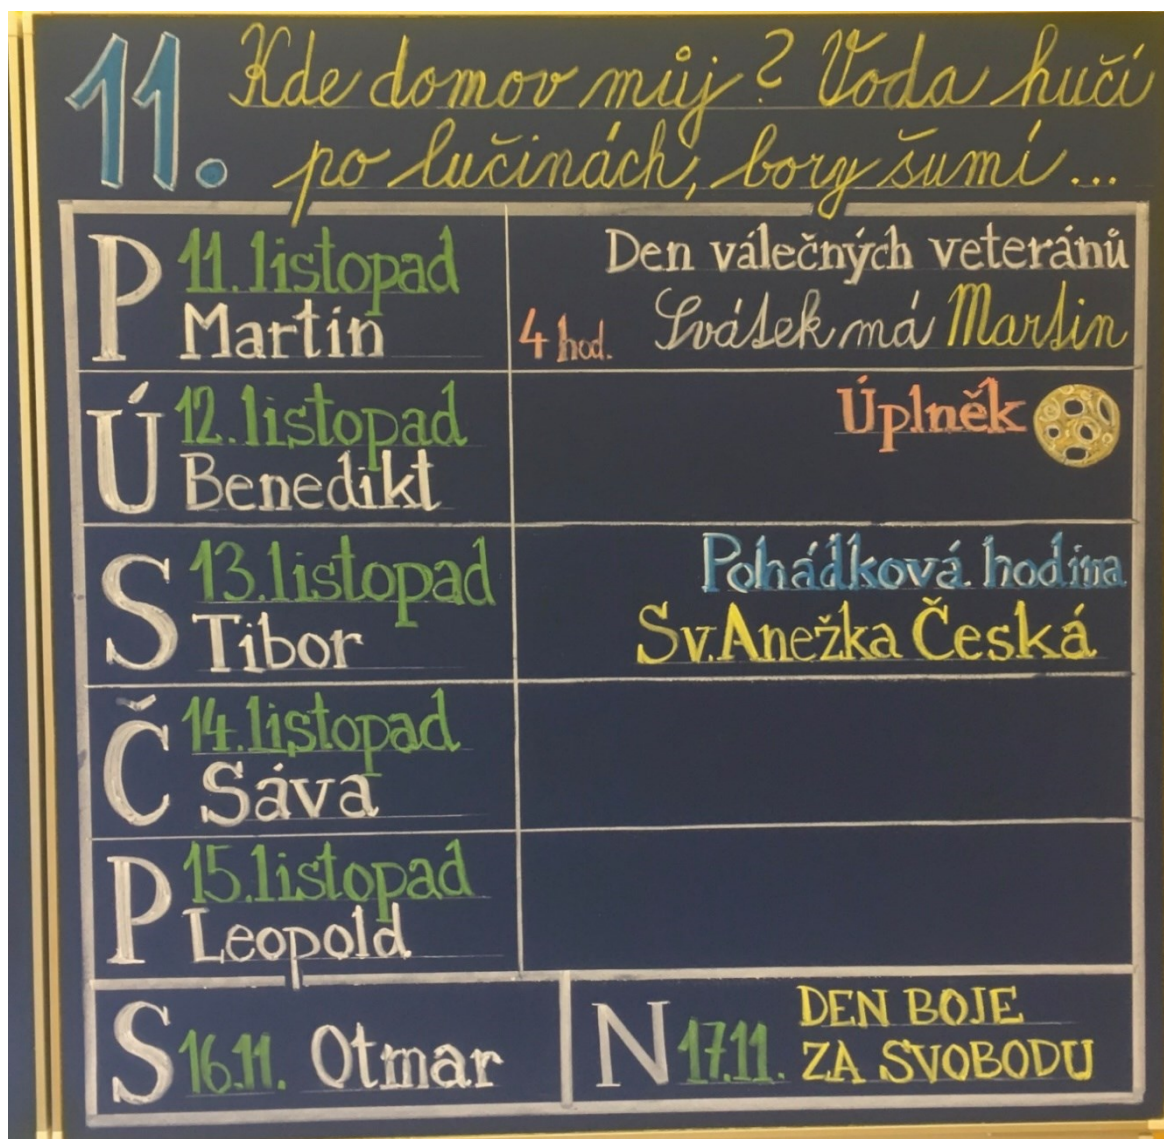 11. Kde domov můj? Voda hučí
po lučinách, bory šumí...
P 11. listopad
Martin
Den válečných veteránů
4 hod. Svátek má Martin
Ú 12. listopad
Benedikt
Úplněk
S 13. listopad
Tibor
Pohádková hodina
Sv. Anežka Česká
Č 14. listopad
Sáva
P 15. listopad
Leopold
S 16.11. Otmar
N 17.11. DEN BOJE
ZA SVOBODU